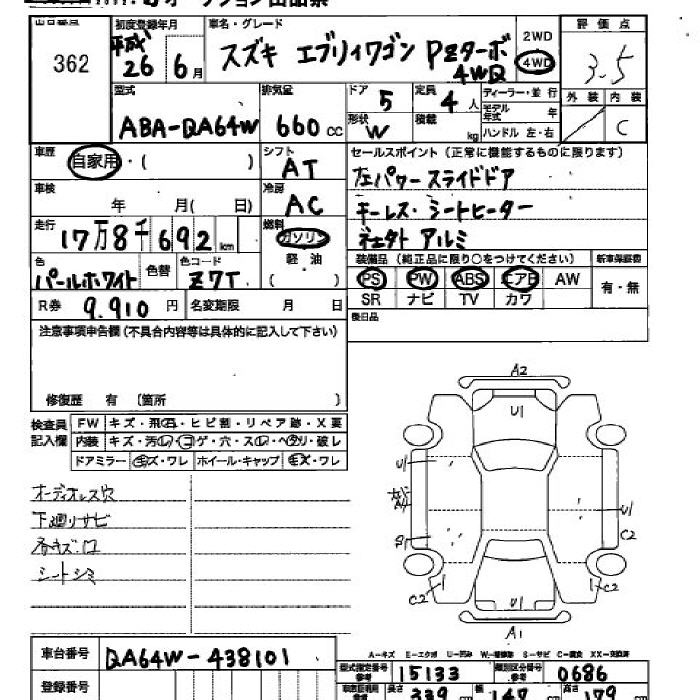 オークション出品票
出品番号 初度登録年月 車名・グレード 2WD 評価点
362 平成 26 6月 スズキ エブリィワゴン PZターボ 4WD 4WD 3.5
型式 排気量 ドア 定員 ディーラー・並行 外装 内装
ABA-DA64W 660cc 5 4人 モデル年式 年
形状 W 積載 kg ハンドル 左・右 C
車歴 自家用・( ) シフト AT セールスポイント(正常に機能するものに限ります)
車検 年 月( 日) 冷房 AC 左パワースライドドア
走行 17万8千692km 燃料 ガソリン キーレス・シートヒーター
軽油 ( ) 社外 アルミ
色 パールホワイト 色替 色コード Z7T 装備品(純正品に限り○をつけてください) 新車保証書
PS PW ABS エアB AW 有・無
R券 9.910円 名変期限 月 日 SR ナビ TV カワ
注意事項申告欄(不具合内容等は具体的に記入して下さい) 後日品
修復歴 有 (箇所 )
検査員記入欄 FW キズ・飛石・ヒビ割・リペア跡・X要
内装 キズ・汚レ・コゲ・穴・スレ・ヘタリ・破レ
ドアミラー キズ・ワレ ホイール・キャップ キズ・ワレ
オーディオレス穴
下廻りサビ
各キズ・凹
シートシミ
A2
U1
U1
A4
U1
S1
C2
C2
U1
C2
A1
A-キズ E-エクボ U-凹み W-補修跡 S-サビ C-腐食 XX-交換済
車台番号 DA64W-438101 型式指定番号 参考 15133 類別区分番号 参考 0686
登録番号 車庫証明用 参考 長さ 339cm 幅 148cm 高さ 189